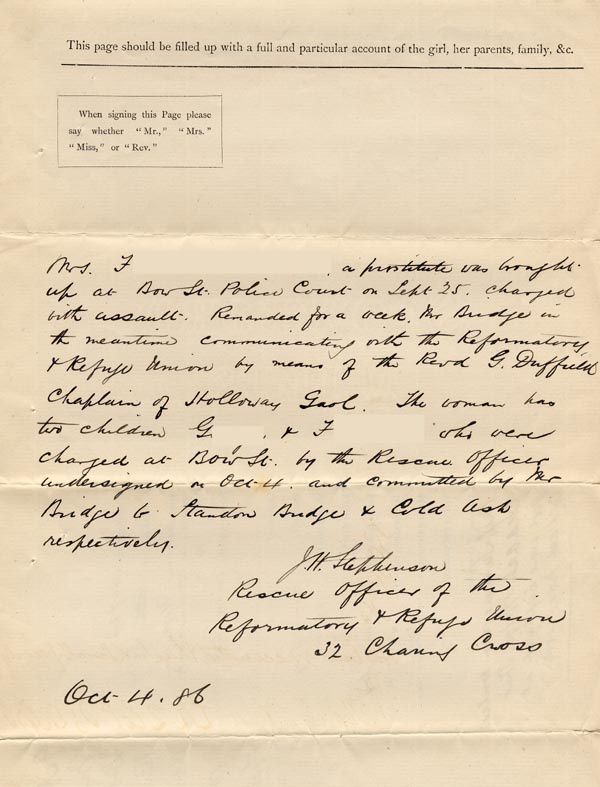 This page should be filled up with a full and particular account of the girl, her parents, family, &c.
When signing this Page please
say whether "Mr.," "Mrs."
"Miss," or "Rev."
Mrs. F a prostitute was brought
up at Bow St. Police Court on Sept 25. charged
with assault. Remanded for a week, Mr Bridge in
th meantime communicating with the Reformatory
& Refuge Union by means of the Revd G. Duffield
Chaplain of Holloway Gaol. The woman has
two children G & F who were
charged at Bow St. by the Rescue Officer
undersigned on Oct 4. and committed by Mr
Bridge to Standon Bridge & Cold Ash
respectively.
J.H. Stephenson
Rescue Officer of the
Reformatory & Refuge Union
32 Charing Cross
Oct 4. 86